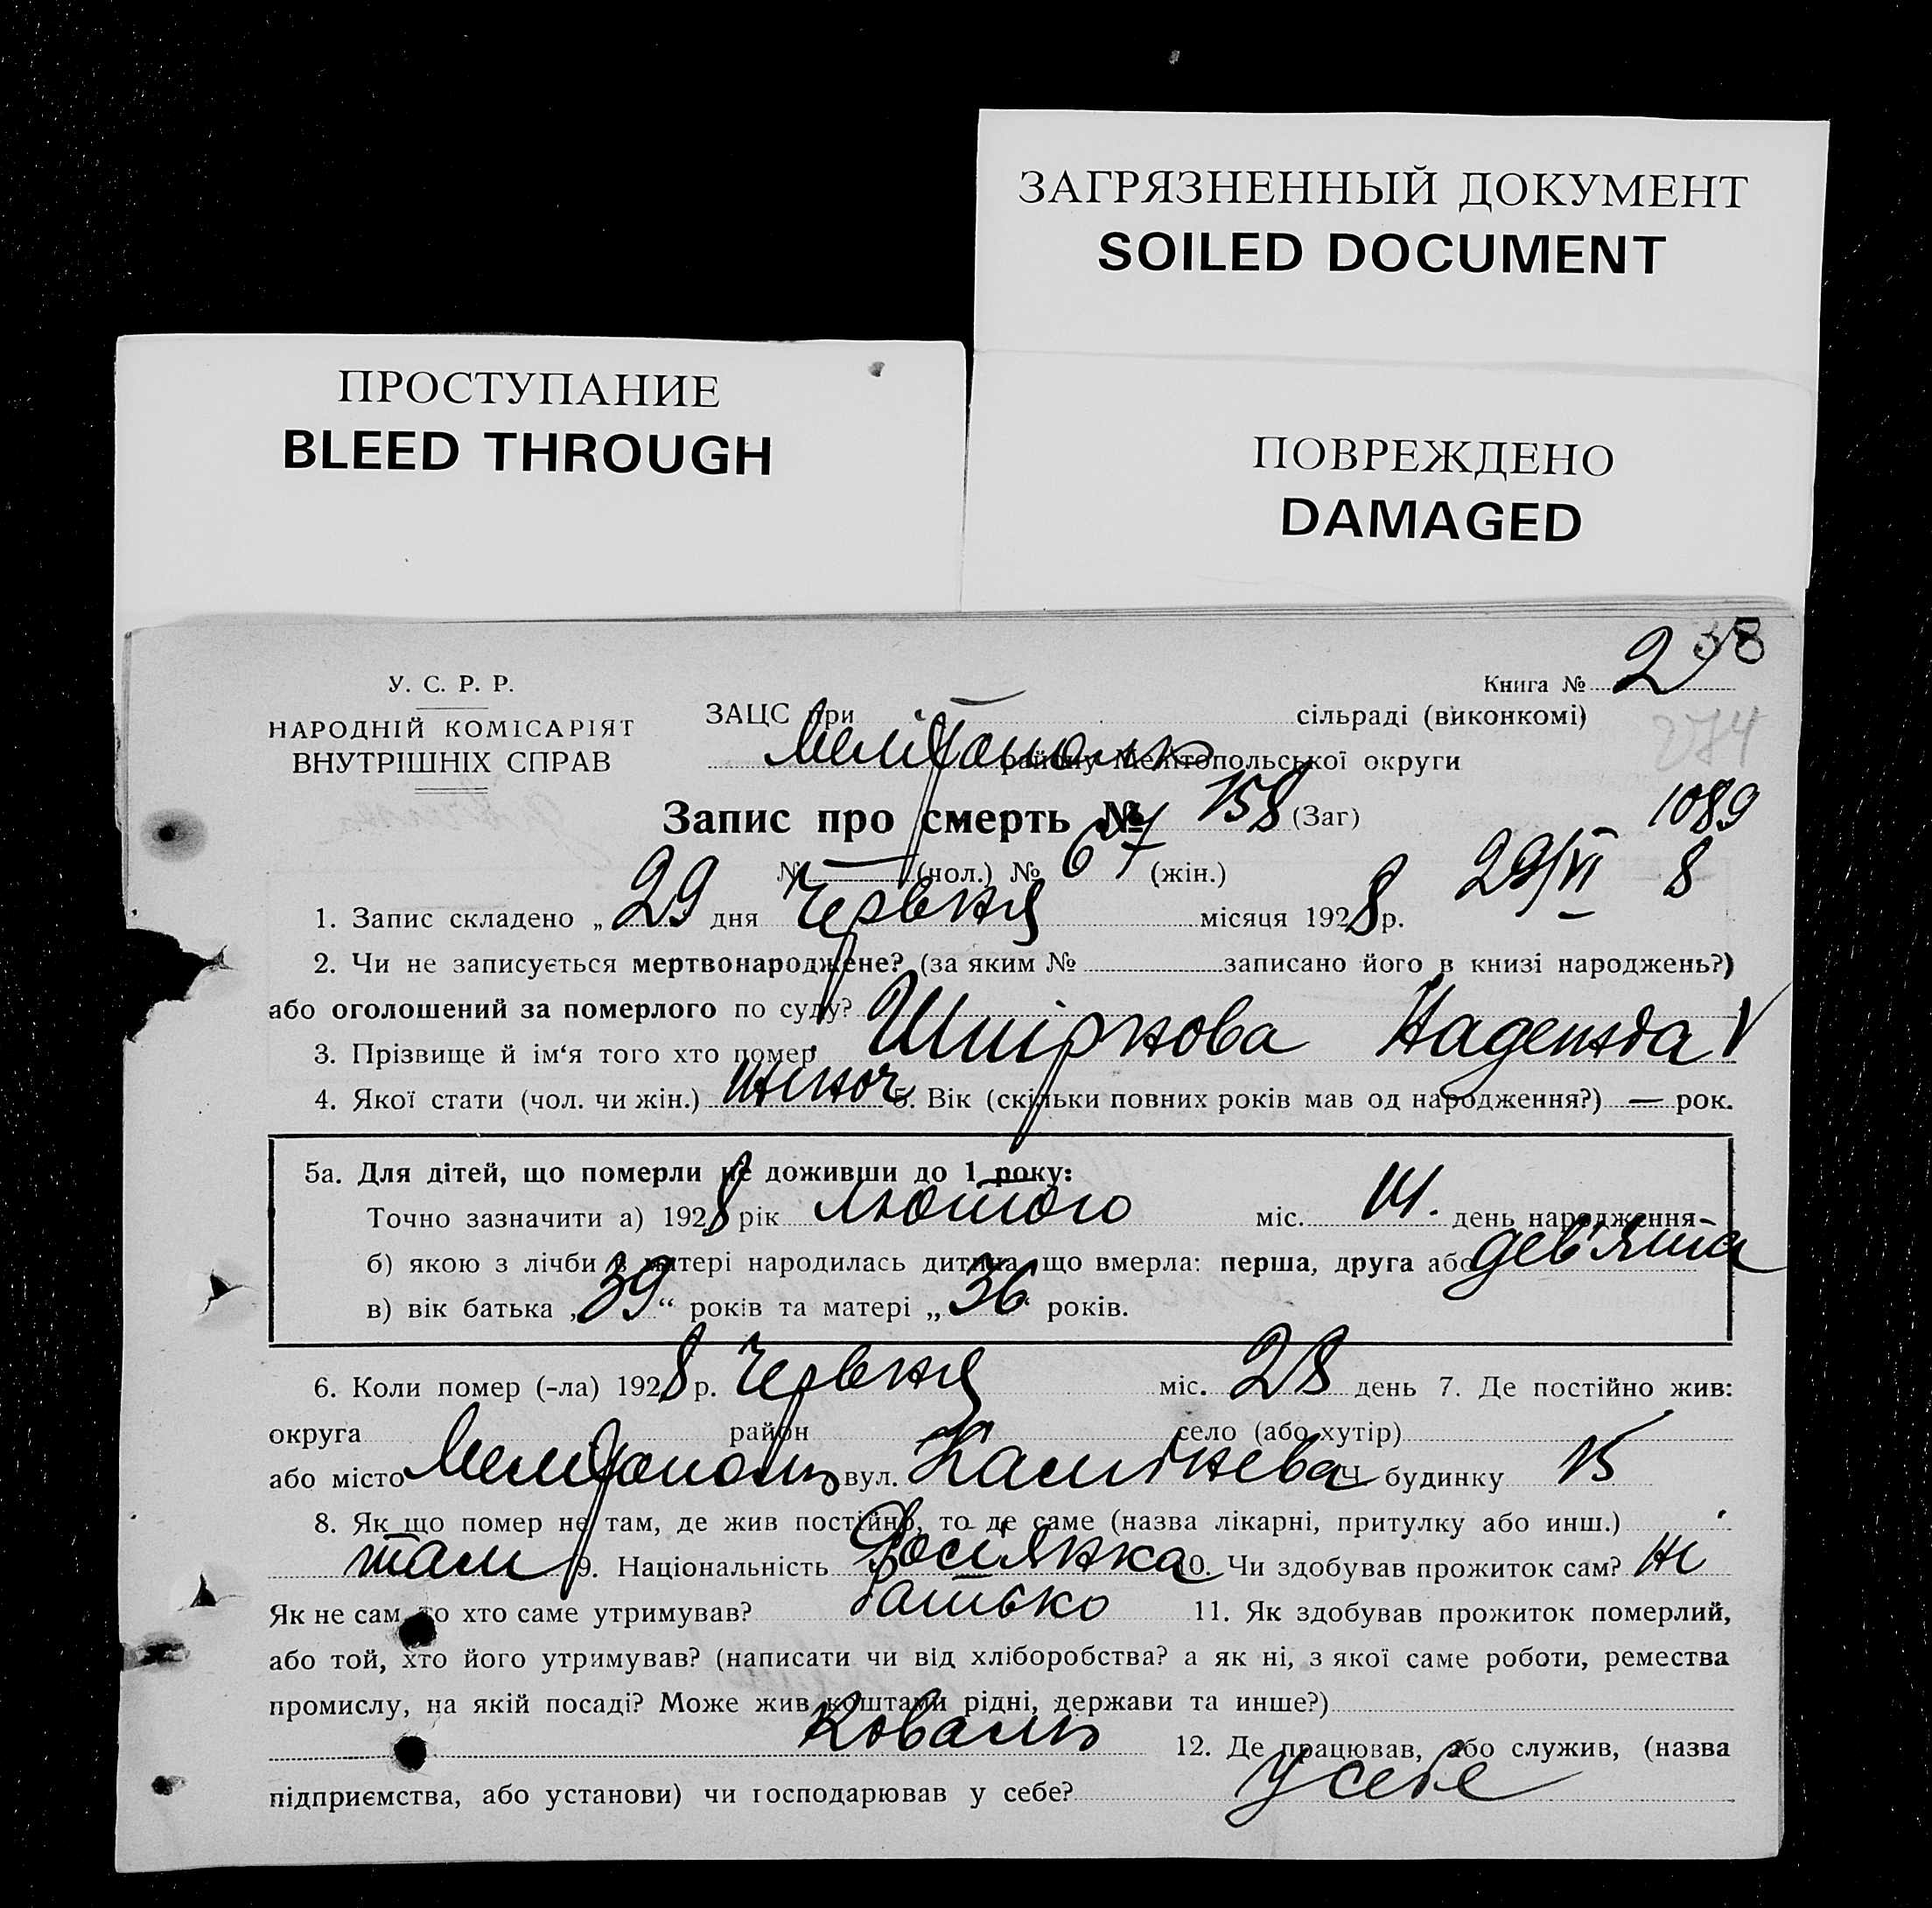 ЗАГРЯЗНЕННЫЙ ДОКУМЕНТ
SOILED DOCUMENT
ПРОСТУПАНИЕ
BLEED THROUGH
ПОВРЕЖДЕНО
DAMAGED
38
У. С. Р. Р.
НАРОДНІЙ КОМІСАРІЯТ
ВНУТРІШНІХ СПРАВ
Книга № 2
ЗАЦС при — сільраді (виконкомі)
274
Мелітополь району Мелітопольської округи
Запис про смерть № 158 (Заг) 1089
№ — (чол.) № 67 (жін.) 29/VI 8
1. Запис складено „ 29 дня Червня місяця 1928 р.
2. Чи не записується мертвонароджене? (за яким № записано його в книзі народжень?)
або оголошений за померлого по суду?
3. Прізвище й ім‘я того хто помер Шпірнова Надежда V
4. Якої стати (чол. чи жін.) жіноч 5. Вік (скільки повних років мав од народження?) — рок.
5а. Для дітей, що померли не доживши до 1 року:
Точно зазначити а) 1928 рік лютого міс. 14. день народження
б) якою з лічби в матері народилась дитина, що вмерла: перша, друга або дев'ята
в) вік батька „39“ років та матері „36“ років.
6. Коли помер (-ла) 1928 р. Червня міс. 28 день 7. Де постійно жив:
округа район село (або хутір)
або місто Мелітополь вул. ч. будинку 15
8. Як що помер не там, де жив постійно, то де саме (назва лікарні, притулку або инш.)
там 9. Національність Росіянка 10. Чи здобував прожиток сам? ні
Як не сам, то хто саме утримував? батько 11. Як здобував прожиток померлий,
або той, хто його утримував? (написати чи від хліборобства? а як ні, з якої саме роботи, ремества
промислу, на якій посаді? Може жив коштами рідні, держави та инше?)
Коваль 12. Де працював, або служив, (назва
підприємства, або установи) чи господарював у себе? У себе